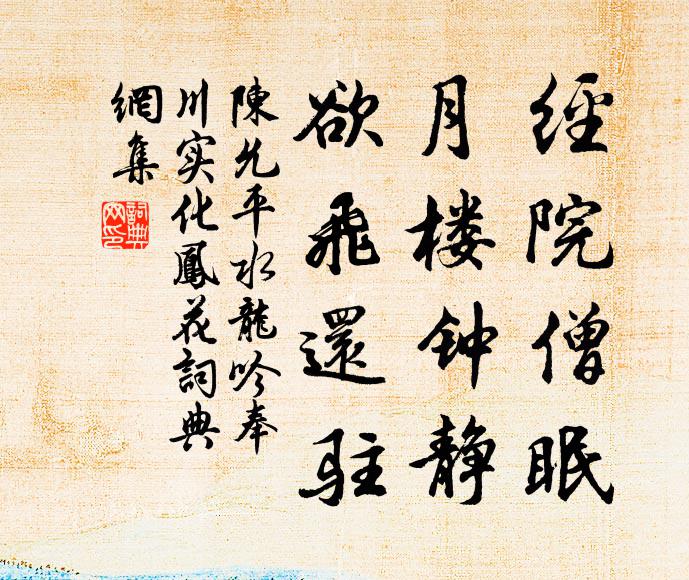 經院僧眠
月楼钟静
欲飛還駐
陳允平水龍吟奉
川实化鳳花詞典
網集
詞典網印